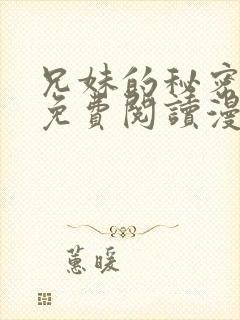 兄妹的秘密
免費閱讀漫
蕙暖